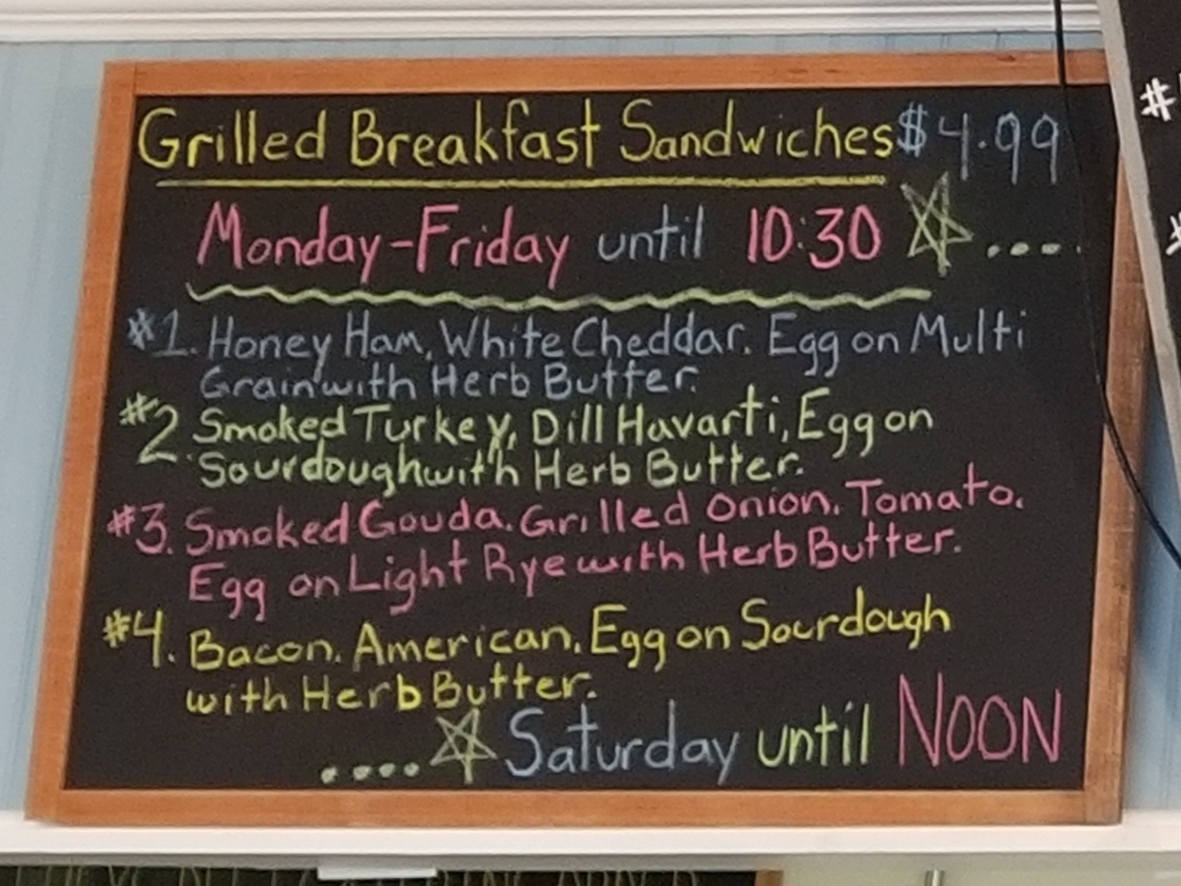 Grilled Breakfast Sandwiches $4.99
Monday-Friday until 10:30 ....
#1. Honey Ham, White Cheddar. Egg on Multi
Grain with Herb Butter.
#2. Smoked Turkey, Dill Havarti, Egg on
Sourdough with Herb Butter.
#3. Smoked Gouda. Grilled Onion. Tomato.
Egg on Light Rye with Herb Butter.
#4. Bacon. American. Egg on Sourdough
with Herb Butter.
.... Saturday until NOON
#
#